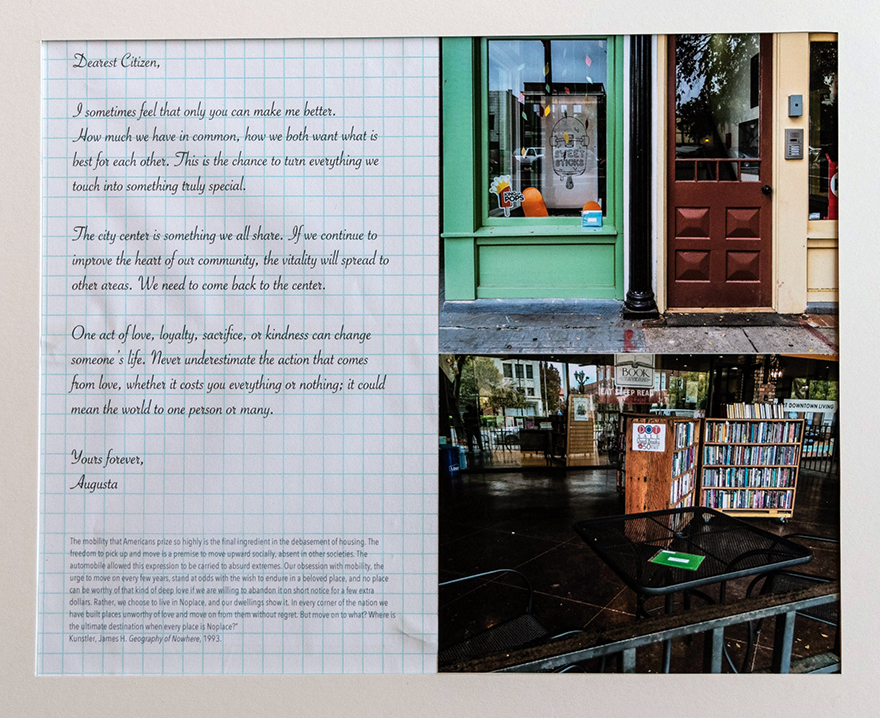 Dearest Citizen,
I sometimes feel that only you can make me better.
How much we have in common, how we both want what is
best for each other. This is the chance to turn everything we
touch into something truly special.
The city center is something we all share. If we continue to
improve the heart of our community, the vitality will spread to
other areas. We need to come back to the center.
One act of love, loyalty, sacrifice, or kindness can change
someone's life. Never underestimate the action that comes
from love, whether it costs you everything or nothing; it could
mean the world to one person or many.
Yours forever,
Augusta
The mobility that Americans prize so highly is the final ingredient in the debasement of housing. The
freedom to pick up and move is a premise to move upward socially, absent in other societies. The
automobile allowed this expression to be carried to absurd extremes. Our obsession with mobility, the
urge to move on every few years, stand at odds with the wish to endure in a beloved place, and no place
can be worthy of that kind of deep love if we are willing to abandon it on short notice for a few extra
dollars. Rather, we choose to live in Noplace, and our dwellings show it. In every corner of the nation we
have built places unworthy of love and move on from them without regret. But move on to what? Where is
the ultimate destination when every place is Noplace?"
Kunstler, James H. Geography of Nowhere, 1993.
SWEET
STICKS
POPS
BOOK
EAT SLEEP READ
DOWNTOWN LIVING
50